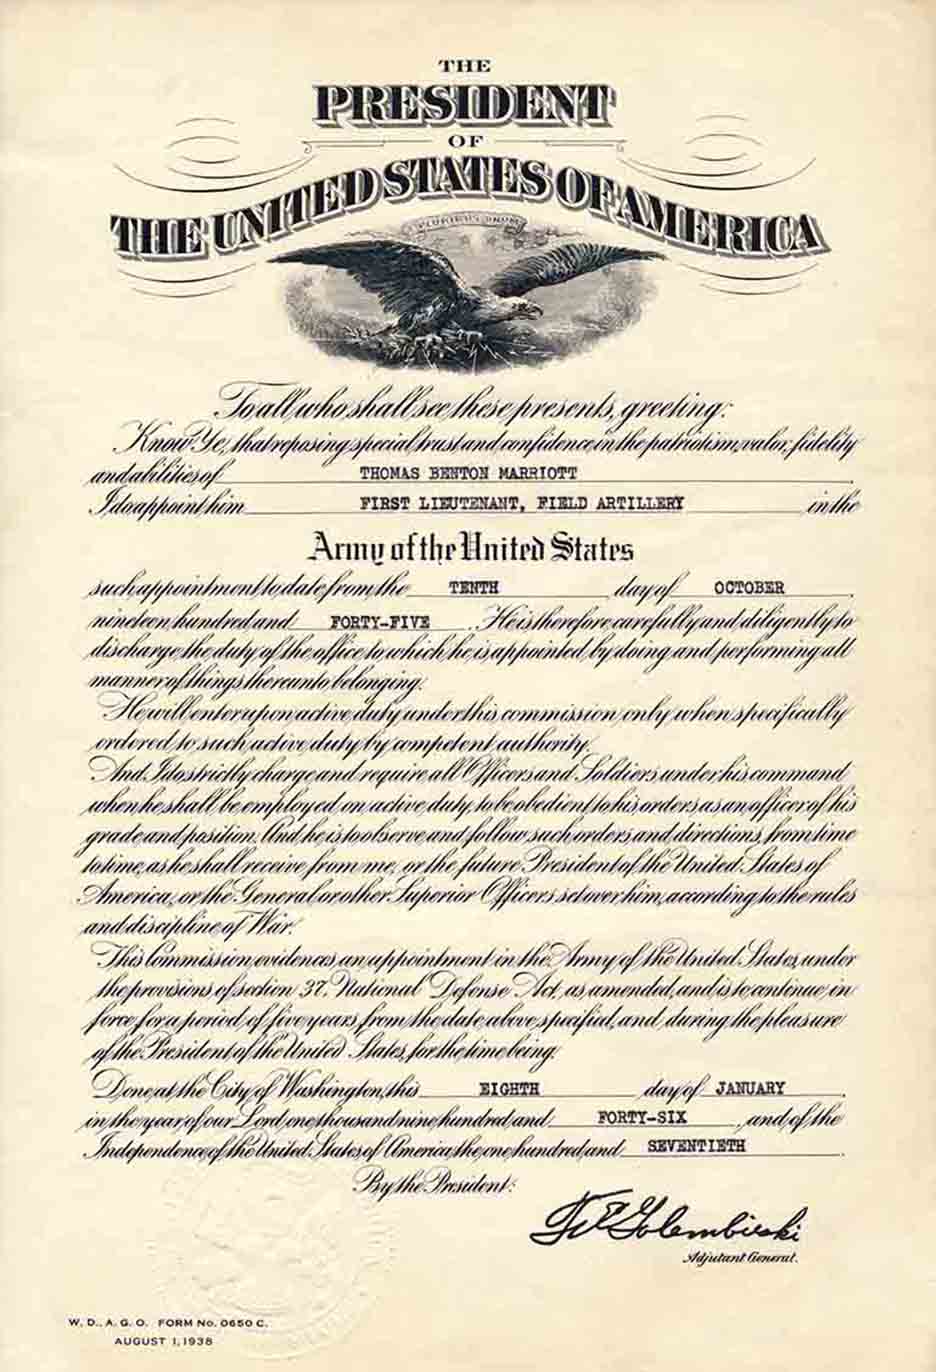 THE
PRESIDENT
OF
THE UNITED STATES OF AMERICA
E PLURIBUS UNUM
To all who shall see these presents, greeting:
Know Ye, that reposing special trust and confidence in the patriotism, valor, fidelity
and abilities of THOMAS BENTON MARRIOTT
I do appoint him FIRST LIEUTENANT, FIELD ARTILLERY in the
Army of the United States
such appointment to date from the TENTH day of OCTOBER
nineteen hundred and FORTY-FIVE. He is therefore carefully and diligently to
discharge the duty of the office to which he is appointed by doing and performing all
manner of things thereunto belonging.
He will enter upon active duty under this commission only when specifically
ordered to such active duty by competent authority.
And I do strictly charge and require all Officers and Soldiers under his command
when he shall be employed on active duty, to be obedient to his orders as an officer of his
grade and position. And he is to observe and follow such orders and directions, from time
to time, as he shall receive from me, or the future President of the United States of
America, or the General or other Superior Officers set over him, according to the rules
and discipline of War.
This Commission evidences an appointment in the Army of the United States, under
the provisions of section 37, National Defense Act, as amended, and is to continue in
force for a period of five years from the date above specified, and during the pleasure
of the President of the United States, for the time being.
Done at the City of Washington, this EIGHTH day of JANUARY
in the year of our Lord, one thousand nine hundred and FORTY-SIX, and of the
Independence of the United States of America, the one hundred and SEVENTIETH.
By the President:
Golembieski
Adjutant General.
W. D., A. G. O. FORM No. 0650 C.
AUGUST 1, 1938